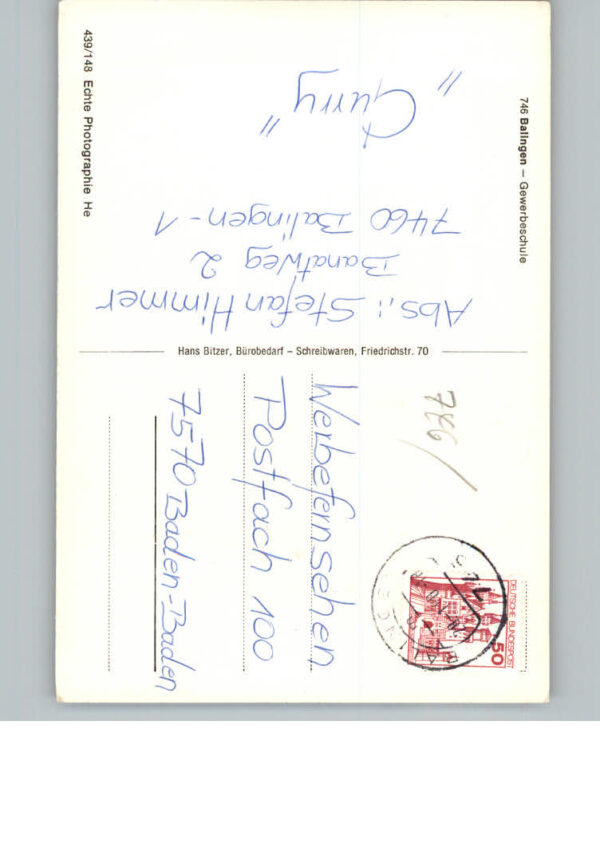 746 Balingen – Gewerbeschule
„Curry"
Abs.: Stefan Himmer
Banatweg 2
7460 Balingen-1
439/148 Echte Photographie He
Hans Bitzer, Bürobedarf – Schreibwaren, Friedrichstr. 70
DEUTSCHE BUNDESPOST
50
Werbefernsehen
Postfach 100
7570 Baden-Baden